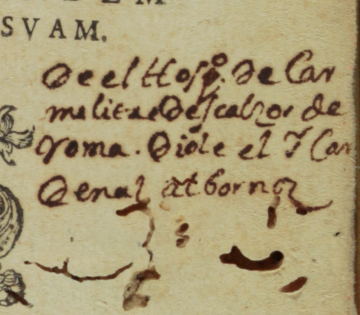 DEM
SVAM.
De el Hosp.º de Car
melitas Descalzos de
Roma. Diole el Y Car
denal Albornoz